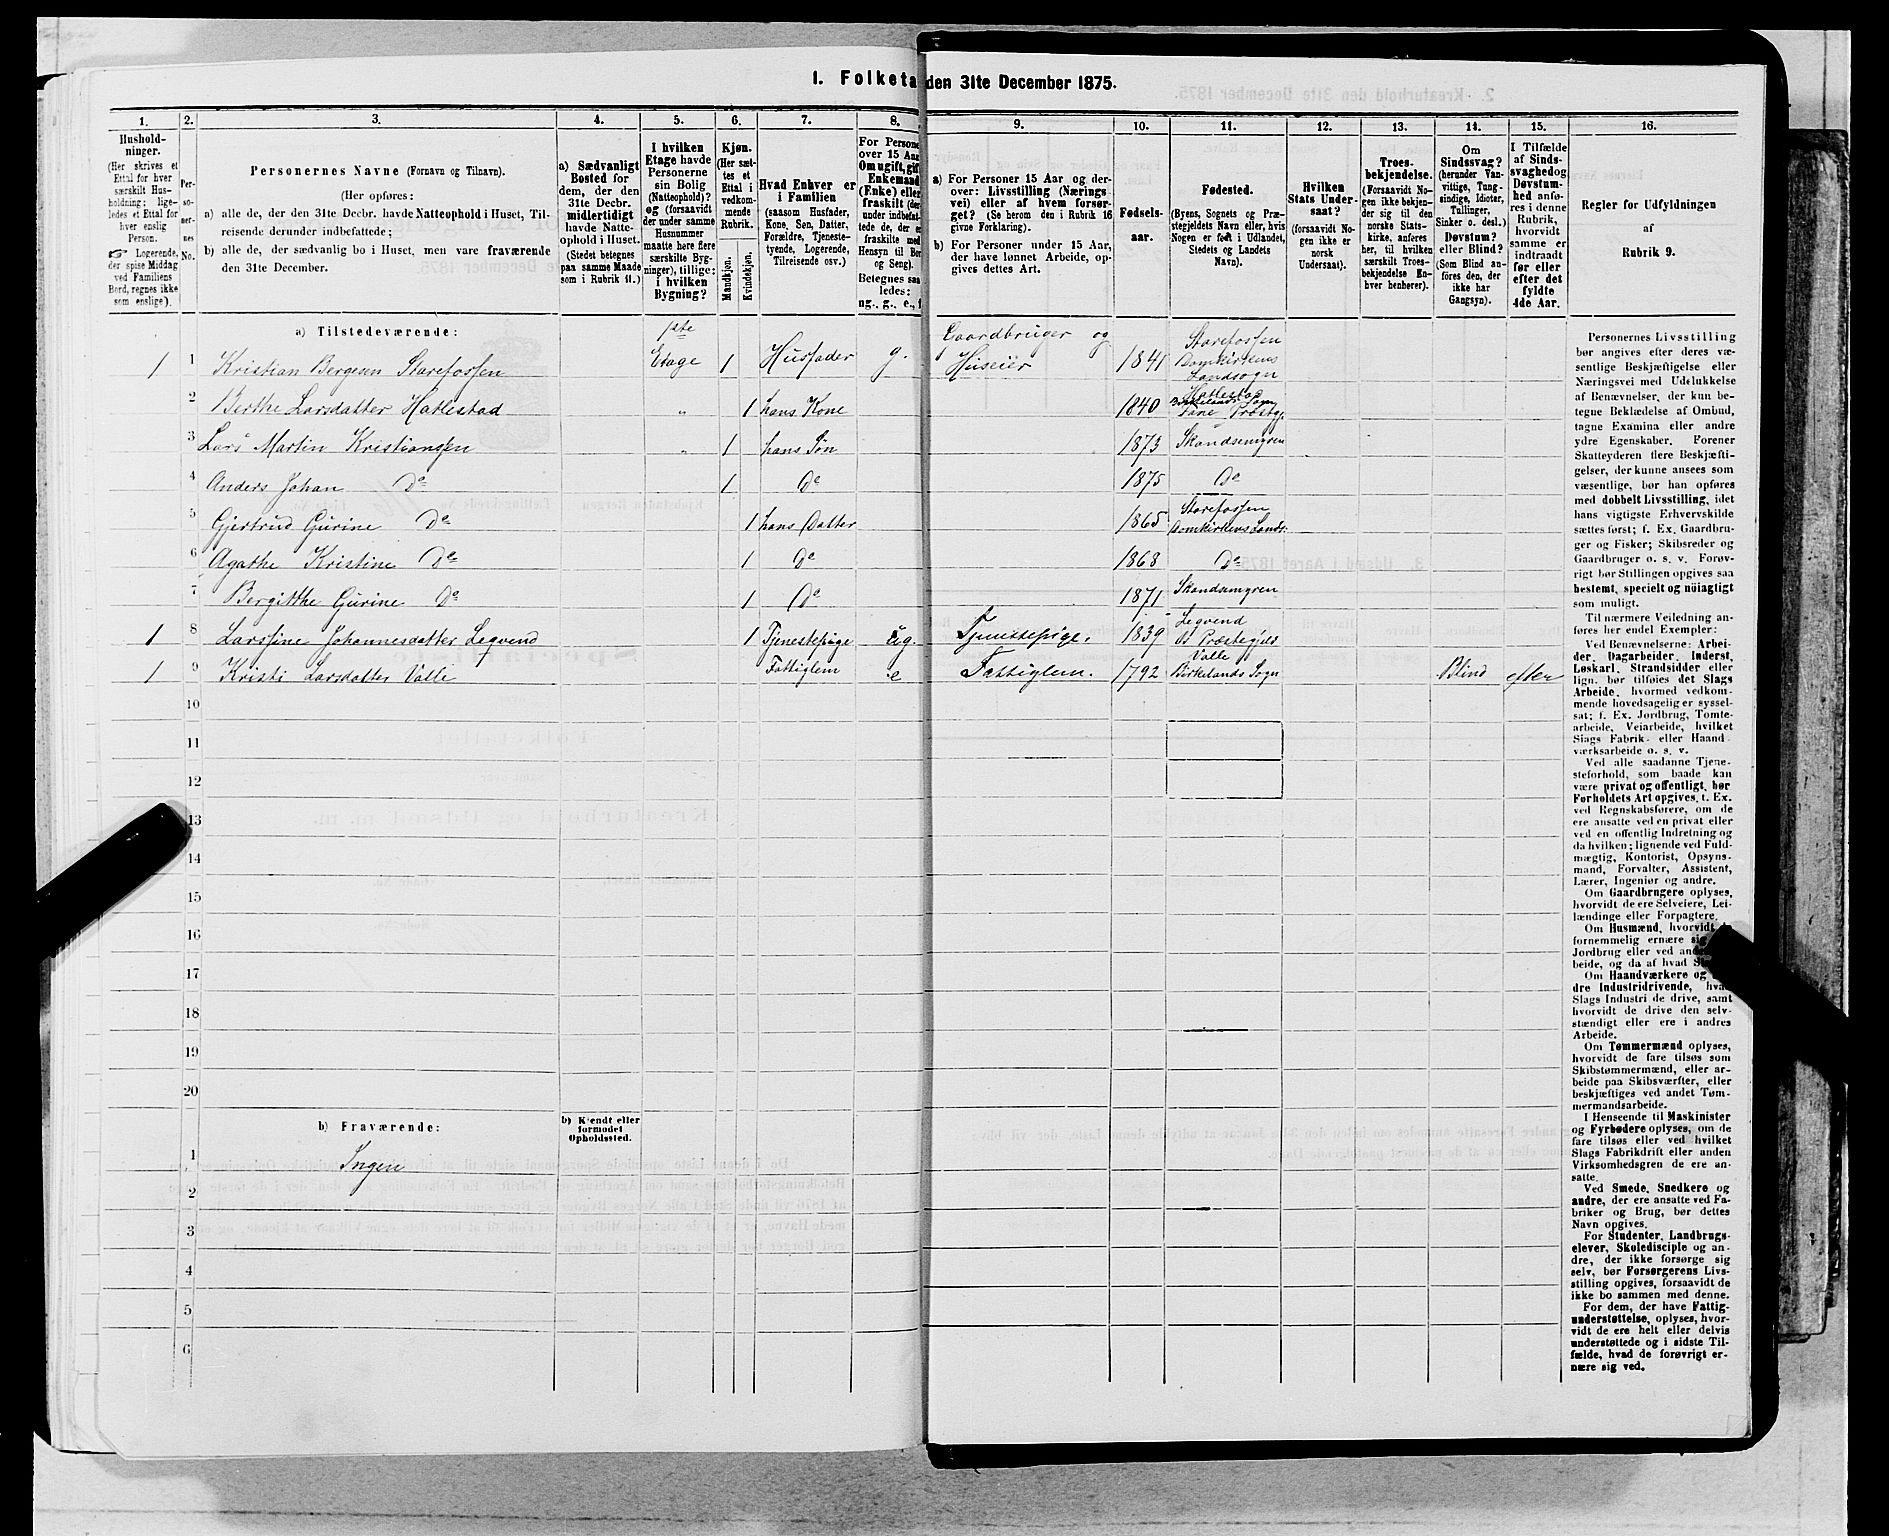 1. Folketa den 31te December 1875.
1.
2.
3.
4.
5.
6.
7.
8.
9.
10.
11.
12.
13.
14.
15.
16.
Hushold-
ninger.
(Her skrives et
Ettal for hver
særskilt Hus-
holdning; lige-
ledes et Ettal for
hver enslig
Person.
☞ Logerende,
der spise Middag
ved Familiens
Bord, regnes ikke
som enslige).
Per-
so-
ner-
nes
No.
Personernes Navne (Fornavn og Tilnavn).
(Her opføres:
a) alle de, der den 31te Decbr. havde Natteophold i Huset, Til-
reisende derunder indbefattede;
b) alle de, der sædvanlig bo i Huset, men vare fraværende
den 31te December.
a) Sædvanligt
Bosted for
dem, der den
31te Decbr.
midlertidigt
havde Natte-
ophold i Huset.
(Stedet betegnes
paa samme Maade
som i Rubrik 11.)
I hvilken
Etage havde
Personerne
sin Bolig
(Natteophold)?
og (forsaavidt
der under samme
Husnummer
maatte høre flere
særskilte Byg-
ninger), tillige:
i hvilken
Bygning?
Kjøn.
(Her sæt-
tes et
Ettal i
vedkom-
mende
Rubrik.
Mandkjøn.
Kvindekjøn.
Hvad Enhver er
i Familien
(saasom Husfader,
Kone, Søn, Datter,
Forældre, Tjeneste-
tyende, Logerende,
Tilreisende osv.)
For Persone
over 15 Aar
Om ugift, gift
Enkemand
(Enke) eller
fraskilt (der
under indbefat-
tede de, der er
fraskilte med
Hensyn til Bor
og Seng).
Betegnes saa
ledes:
ug., g., e., f
a) For Personer 15 Aar og der-
over: Livsstilling (Nærings-
vei) eller af hvem forsør-
get? (Se herom den i Rubrik 16
givne Forklaring).
b) For Personer under 15 Aar,
der have lønnet Arbeide, op-
gives dettes Art.
Fødsels-
aar.
Fødested.
(Byens, Sognets og Præ-
stegjeldets Navn eller, hvis
Nogen er født i Udlandet,
Stedets og Landets
Navn).
Hvilken
Stats Under-
saat?
(forsaavidt No-
gen ikke er
norsk
Undersaat).
Troes-
bekjendelse.
(Forsaavidt No-
gen ikke bekjen-
der sig til den
norske Stats-
kirke, anføres
her, til hvilken
særskilt Troes-
bekjendelse En-
hver henhører).
Om
Sindssvag?
(herunder Van-
vittige, Tung-
sindige, Idioter,
Tullinger,
Sinker o. desl.)
Døvstum?
eller Blind?
(Som Blind an-
føres den, der
ikke har
Gangsyn).
I Tilfælde
af Sinds-
svaghed og
Døvstum-
hed anfø-
res i denne
Rubrik,
hvorvidt
samme er
indtraadt
før eller
efter det
fyldte
4de Aar.
Regler for Udfyldningen
af
Rubrik 9.
a) Tilstedeværende:
1 1 Kristian Bergesen Storefossen 1ste Etage 1 Husfader g. Gaardbruger og Huseier 1841 Storefossen Domkirkens Landsogn
2 Berthe Larsdatter Hatlestad " 1 hans Kone 1840 Hatlestad Birkelands Sogn Fane Præstg.
3 Lars Martin Kristiansen " 1 hans Søn 1873 Skandsemyren
4 Anders Johan Do 1 Do 1875 Do
5 Gjertrud Gurine Do 1 hans Datter 1865 Storefossen Domkirkens Lands.
6 Agathe Kristine Do 1 Do 1868 Do
7 Bergitthe Gurine Do 1 Do 1871 Skandsemyren
1 8 Larssine Johannesdatter Legvend 1 Tjenestepige ug. Tjenestepige. 1839 Legvend Præstegjeld
1 9 Kristi Larsdatter Valle Fattiglem e Fattiglem. 1792 Valle Birkelands Sogn Blind efter
10
11
12
13
14
15
16
17
18
19
20
b) Fraværende:
b) Kjendt eller
formodet
Opholdssted.
1 Ingen
2
3
4
5
6
Personernes Livsstilling
bør angives efter deres væ-
sentlige Beskjæftigelse eller
Næringsvei med Udelukkelse
af Benævnelser, der kun be-
tegne Beklædelse af Ombud,
tagne Examina eller andre
ydre Egenskaber. Forener
Skatteyderen flere Beskjæfti-
gelser, der kunne ansees som
væsentlige, bør han opføres
med dobbelt Livsstilling, idet
hans vigtigste Erhvervskilde
sættes først; f. Ex. Gaardbru-
ger og Fisker; Skibsreder og
Gaardbruger o. s. v. Forøv-
rigt bør Stillingen opgives saa
bestemt, specielt og nøiagtigt
som muligt.
Til nærmere Veiledning an-
føres her endel Exempler:
Ved Benævnelserne: Arbei-
der, Dagarbeider, Inderst,
Løskarl, Strandsidder eller
lign. bør tilføies det Slags
Arbeide, hvormed vedkom-
mende hovedsagelig er syssel-
sat; f. Ex. Jordbrug, Tomte-
arbeide, Veiarbeide, hvilket
Slags Fabrik- eller Haand-
værksarbeide o. s. v.
Ved alle saadanne Tjene-
steforhold, som baade kan
være privat og offentligt, bør
Forholdets Art opgives, t. Ex.
ved Regnskabsførere, om de
ere ansatte ved en privat eller
ved en offentlig Indretning og
da hvilken; lignende ved Fuld-
mægtig, Kontorist, Opsyns-
mand, Forvalter, Assistent,
Lærer, Ingeniør og andre.
Om Gaardbrugere oplyses,
hvorvidt de ere Selveiere, Lei-
lændinge eller Forpagtere.
Om Husmænd, hvorvidt
fornemmelig ernære sig
Jordbrug eller ved and
beide, og da af hvad S
Om Haandværkere og
dre Industridrivende, hva
Slags Industri de drive, samt
hvorvidt de drive den selv-
stændigt eller ere i andres
Arbeide.
Om Tømmermænd oplyses,
hvorvidt de fare tilsøs som
Skibstømmermænd, eller ar-
beide paa Skibsværfter, eller
beskjæftiges ved andet Tøm-
mermandsarbeide.
I Henseende til Maskinister
og Fyrbødere oplyses, om de
fare tilsøs eller ved hvilket
Slags Fabrikdrift eller anden
Virksomhedsgren de ere an-
satte.
Ved Smede, Snedkere og
andre, der ere ansatte ved Fa-
briker og Brug, bør dettes
Navn opgives.
For Studenter, Landbrugs-
elever, Skoledisciple og an-
dre, der ikke forsørge sig
selv, bør Forsørgerens Livs-
stilling opgives, forsaavidt de
ikke bo sammen med denne.
For dem, der have Fattig-
understøttelse, oplyses, hvor-
vidt de ere helt eller delvis
understøttede og i sidste Til-
fælde, hvad de forøvrigt er-
nære sig ved.